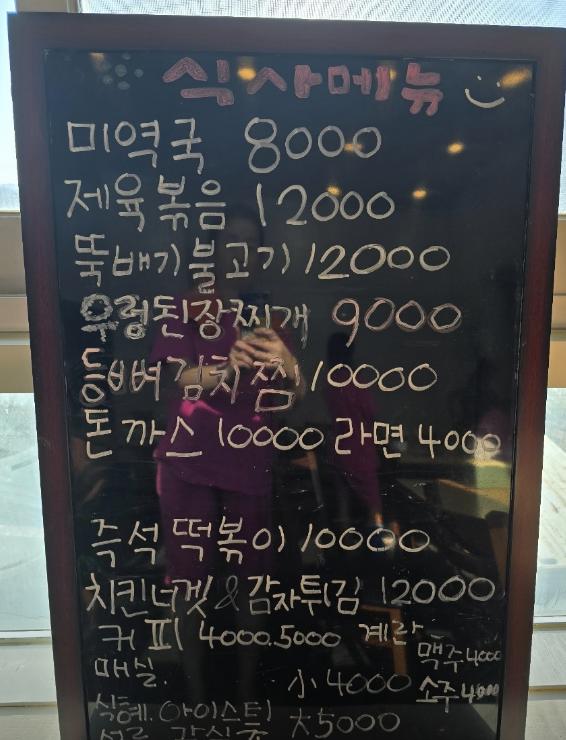 식사메뉴
미역국 8000
제육볶음 12000
뚝배기불고기 12000
우렁된장찌개 9000
등뼈김치찜 10000
돈까스 10000 라면 4000
즉석떡볶이 10000
치킨너겟&감자튀김 12000
커피 4000.5000 계란
맥주 4000
매실. 小 4000 소주 4000
식혜.아이스티 大 5000